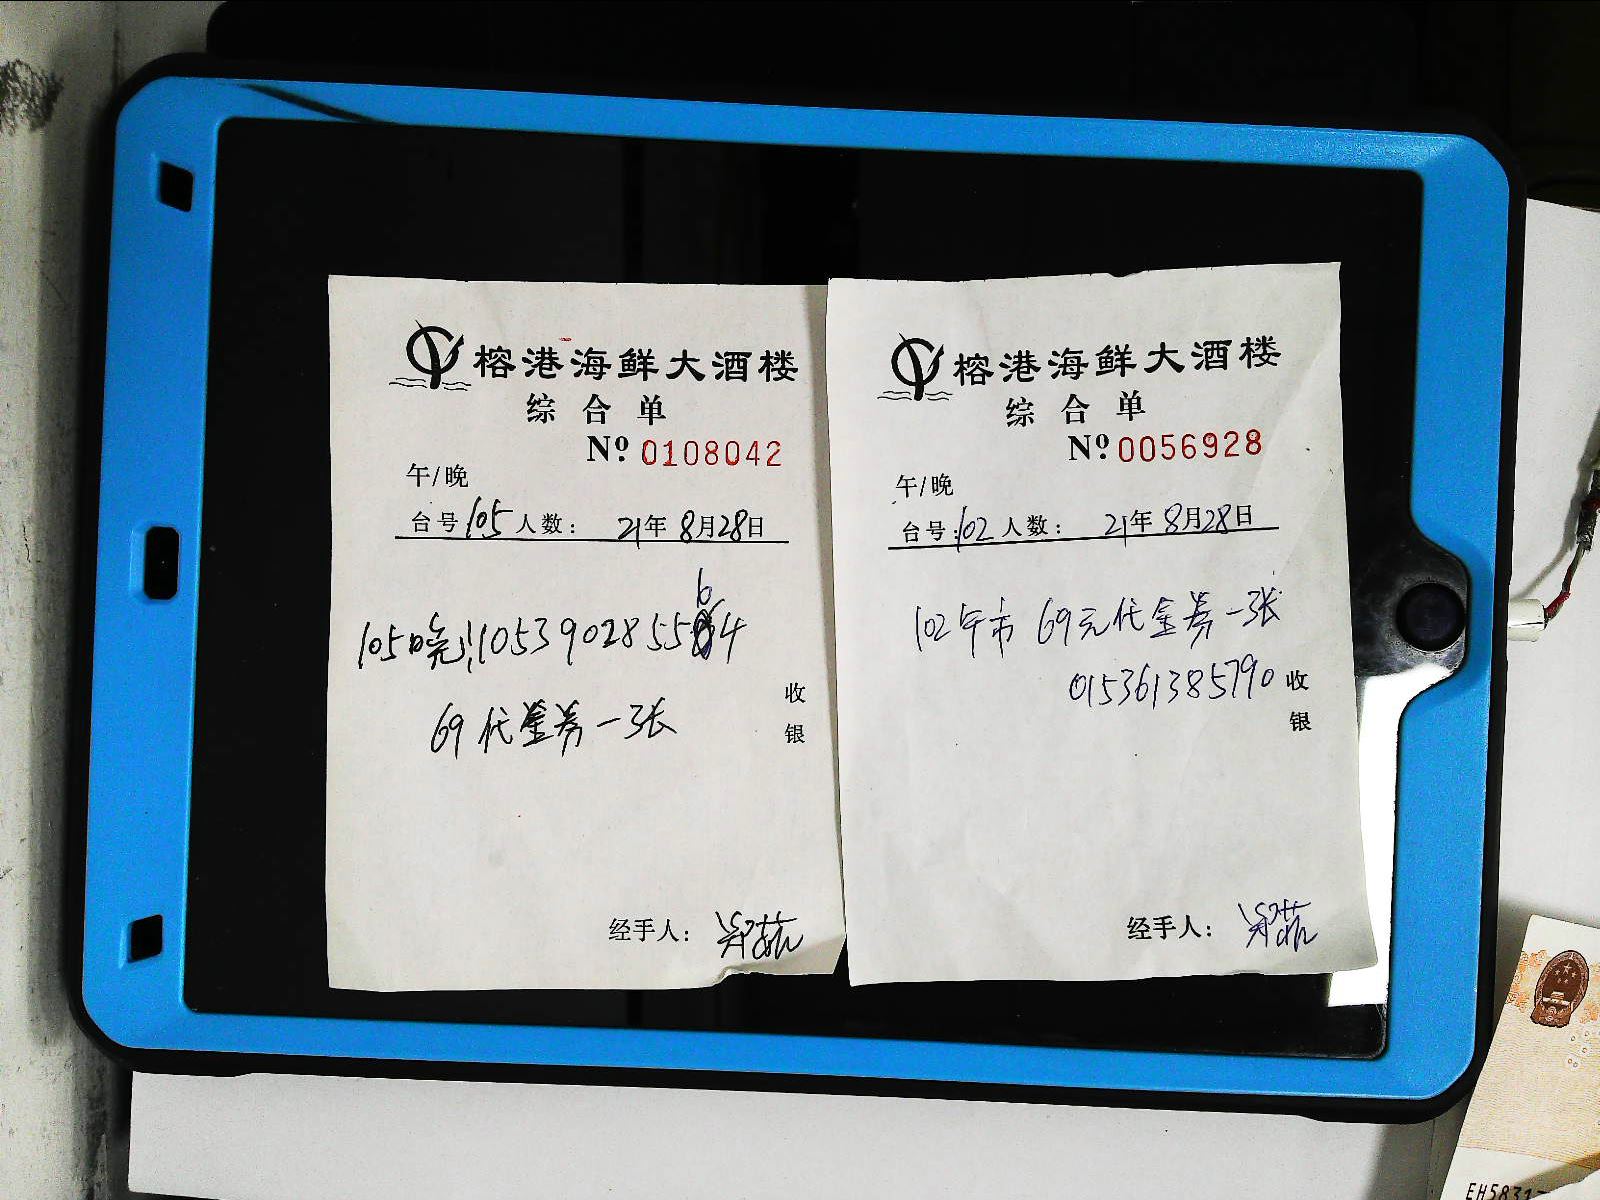 榕港海鲜大酒楼
综合单
Nº 0108042
午/晚
台号105人数: 21年8月28日
6
69代金券一张
收
银
经手人:
榕港海鲜大酒楼
综合单
Nº 0056928
午/晚
台号:102人数: 21年8月28日
102午市 69元代金券一张
015361385790
收
银
经手人: